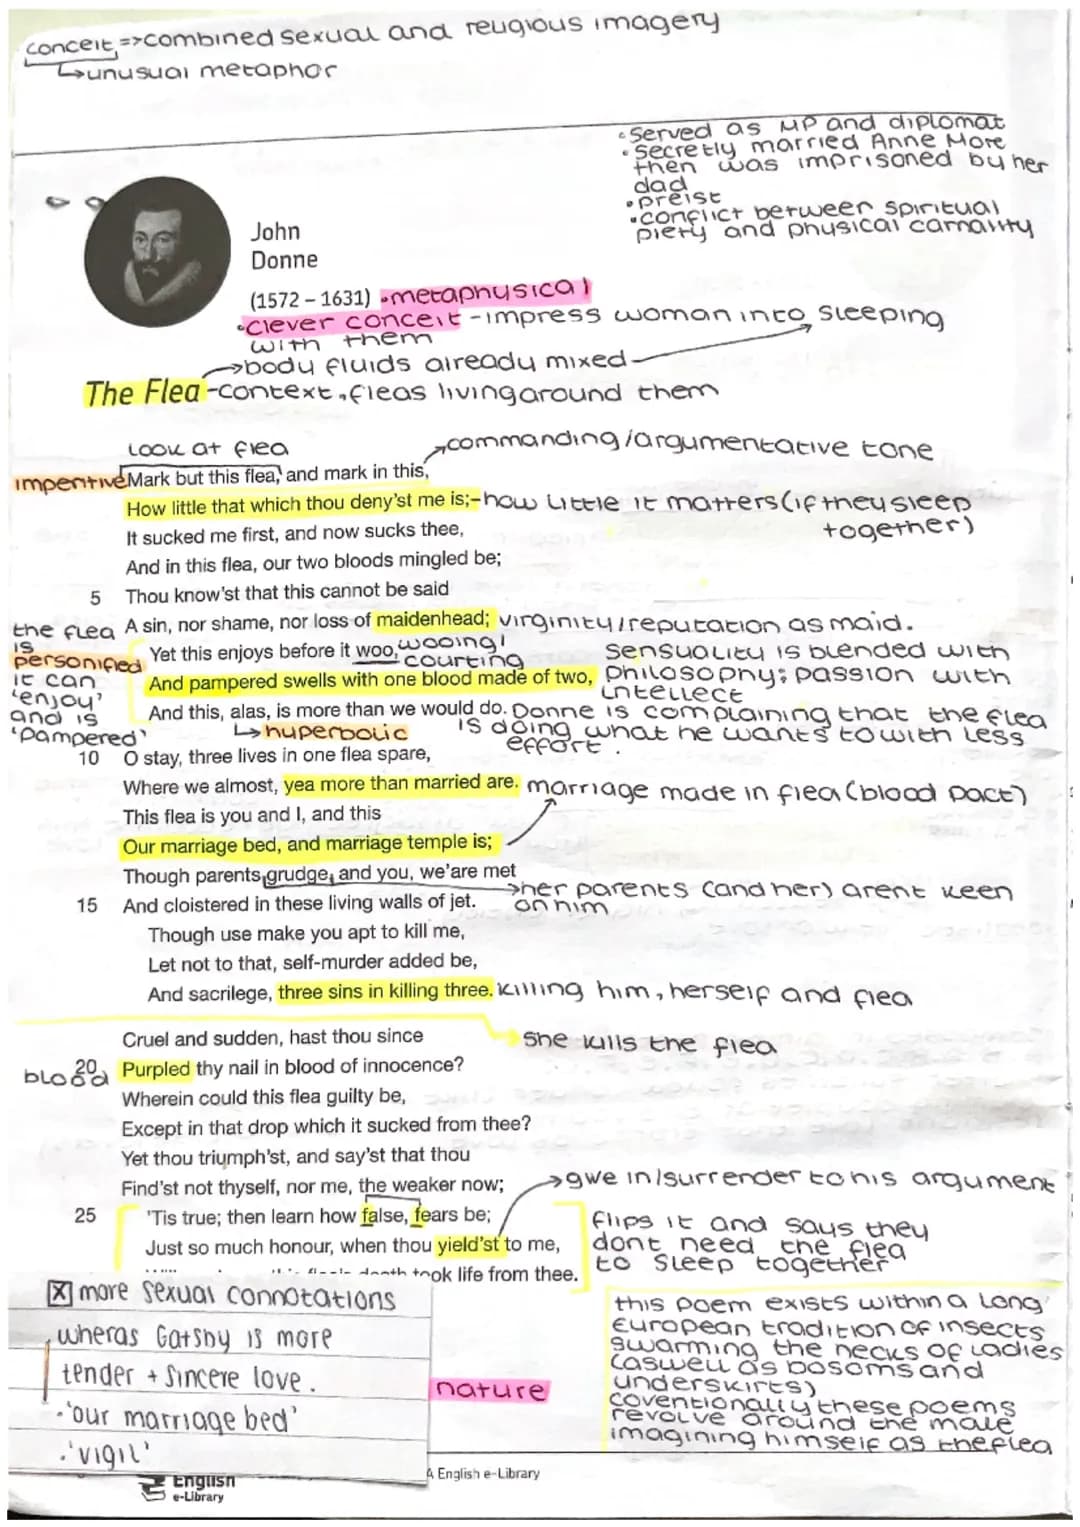 conceit => combined sexual and religious imagery
↳unusual metaphor
• served as MP and diplomat
• secretly married Anne More
then was imprisoned by her
dad
• preist
• conflict between spiritual
piety and physical carnality
John
Donne
(1572 – 1631) • metaphysical
• clever conceit - impress woman into sleeping
with them
→body fluids already mixed
The Flea - context, fleas living around them
Look at flea
→commanding/argumentative tone
impentive Mark but this flea, and mark in this,
How little that which thou deny'st me is; - how little it matters (if they sleep
together)
It sucked me first, and now sucks thee,
And in this flea, our two bloods mingled be;
5 Thou know'st that this cannot be said
A sin, nor shame, nor loss of maidenhead; virginity/reputation as maid.
the flea
is
personified
it can
'enjoy'
and is
'pampered'
Yet this enjoys before it woo, wooing/
courting
And pampered swells with one blood made of two,
And this, alas, is more than we would do.
↳hyperbolic
sensuality is blended with
philosophy; passion with
intellect
Donne is complaining that the flea
is doing what he wants to with less
effort.
10 O stay, three lives in one flea spare,
Where we almost, yea more than married are. marriage made in flea (blood pact)
This flea is you and I, and this
Our marriage bed, and marriage temple is;
Though parents grudge, and you, we'are met
→her parents (and her) arent keen
on him
15 And cloistered in these living walls of jet.
Though use make you apt to kill me,
Let not to that, self-murder added be,
And sacrilege, three sins in killing three. killing him, herself and flea
Cruel and sudden, hast thou since
she kills the flea
20 Purpled thy nail in blood of innocence?
blood
Wherein could this flea guilty be,
Except in that drop which it sucked from thee?
Yet thou triumph'st, and say'st that thou
Find'st not thyself, nor me, the weaker now;
→gwe in/surrender to his argument
25 'Tis true; then learn how false, fears be;
Just so much honour, when thou yield'st to me,
took life from thee.
flips it and says they
dont need the flea
to sleep together
☒ more sexual connotations
wheras Gatsby is more
tender + sincere love.
• 'our marriage bed'
• 'vigil'
nature
this poem exists within a long
European tradition of insects
swarming the necks of ladies
(aswell as bosoms and
underskirts)
coventionally these poems
revolve around the male
imagining himself as the flea
English
e-Library
A English e-Library